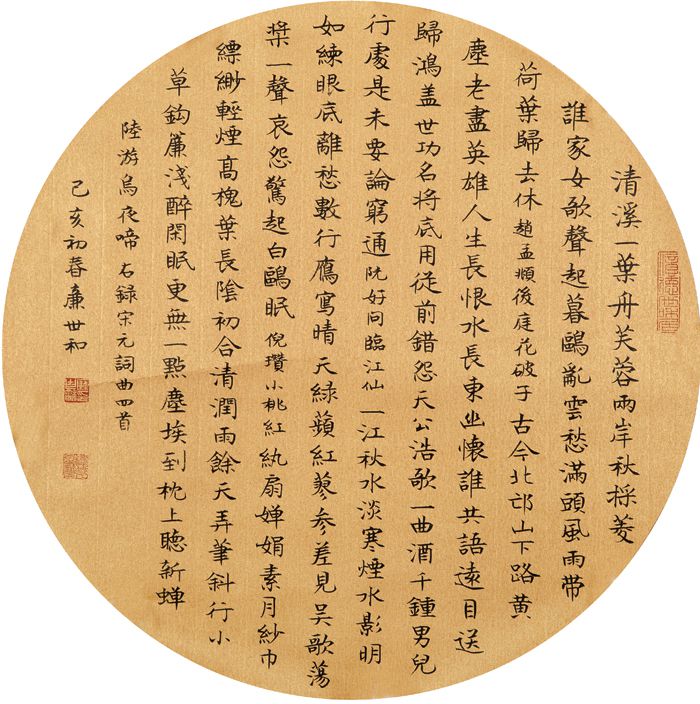 清溪一葉舟芙蓉兩岸秋採菱
誰家女歌聲起暮鷗亂雲愁滿頭風雨帶
荷葉歸去休趙孟頫後庭花破子古今北邙山下路黃
塵老盡英雄人生長恨水長東幽懷誰共語遠目送
歸鴻盖世功名將底用從前錯怨天公浩歌一曲酒千鍾男兒
行處是未要論窮通阮好问臨江仙一江秋水淡寒煙水影明
如練眼底離愁數行鴈寫晴天綠蘋紅蓼參差見吳歌蕩
槳一聲哀怨驚起白鷗眠倪瓚小桃紅紈扇嬋娟素月紗巾
縹緲輕煙高槐葉長陰初合清潤雨餘天弄筆斜行小
草鈎簾淺醉閑眠更無一點塵埃到枕上聽新蟬
陸游烏夜啼右録宋元詞曲四首
己亥初春廉世和